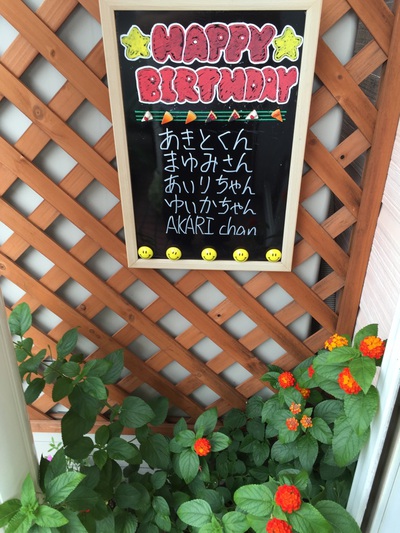 HAPPY
BIRTHDAY
あきとくん
まゆみさん
あいりちゃん
ゆいかちゃん
AKARI chan